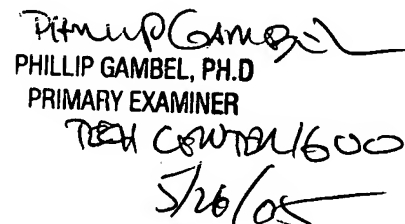 Phillip Gambel
PHILLIP GAMBEL, PH.D
PRIMARY EXAMINER
TECH CENTER 1600
5/26/05